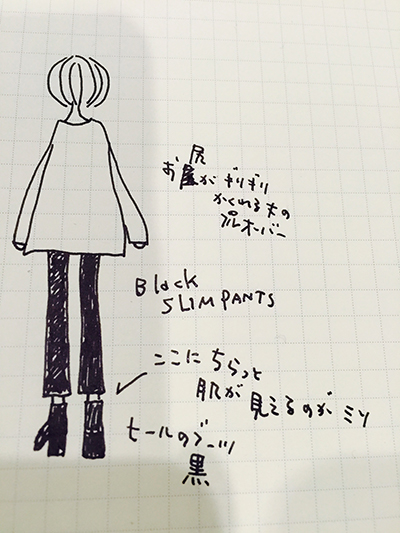 尻
お尻がギリギリ
かくれる大の
プルオーバー
Black
SLIM PANTS
ここにちらっと
肌が見えるのがミソ
ヒールのブーツ
黒